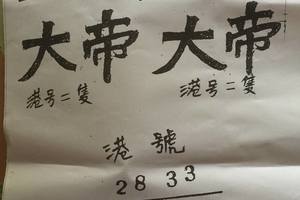 大帝 大帝
港号二隻 港号二隻
港號
28 33